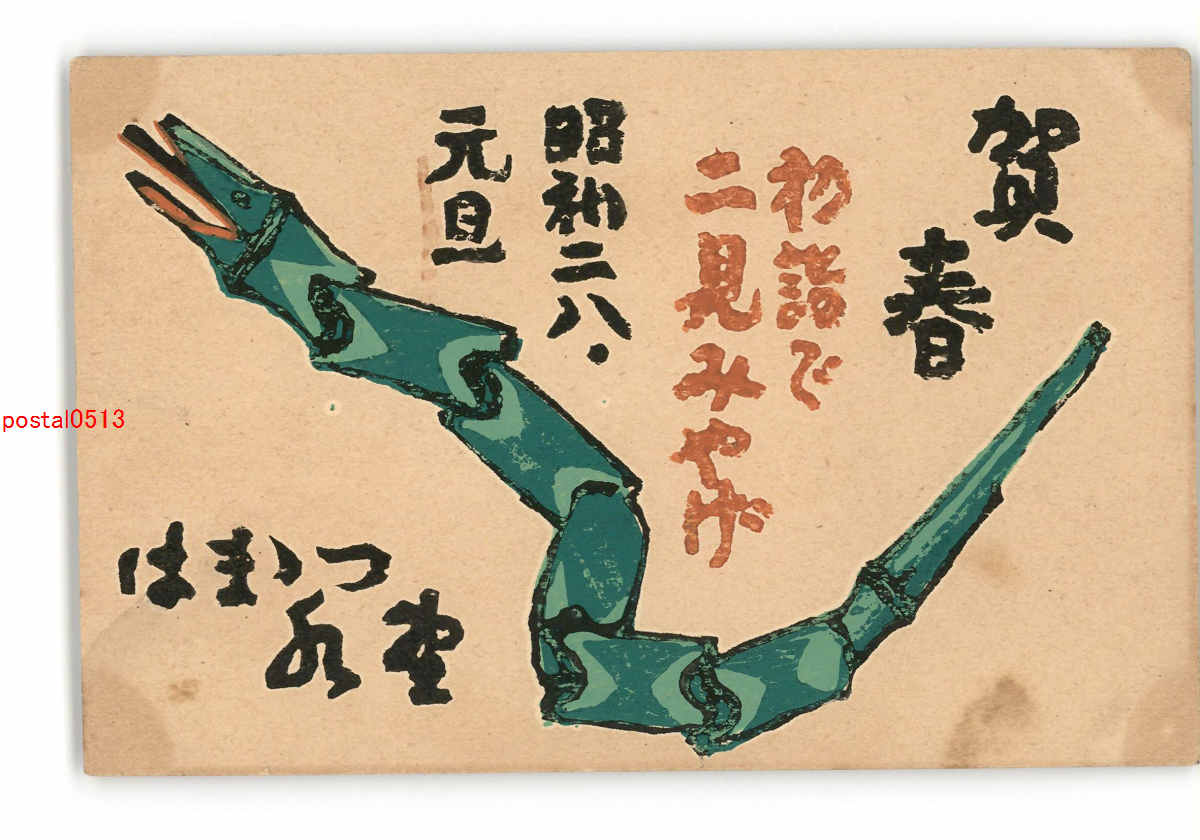 賀春
初詣で
二見みやげ
昭和二八・
元旦
はまかつ
堂
postal0513